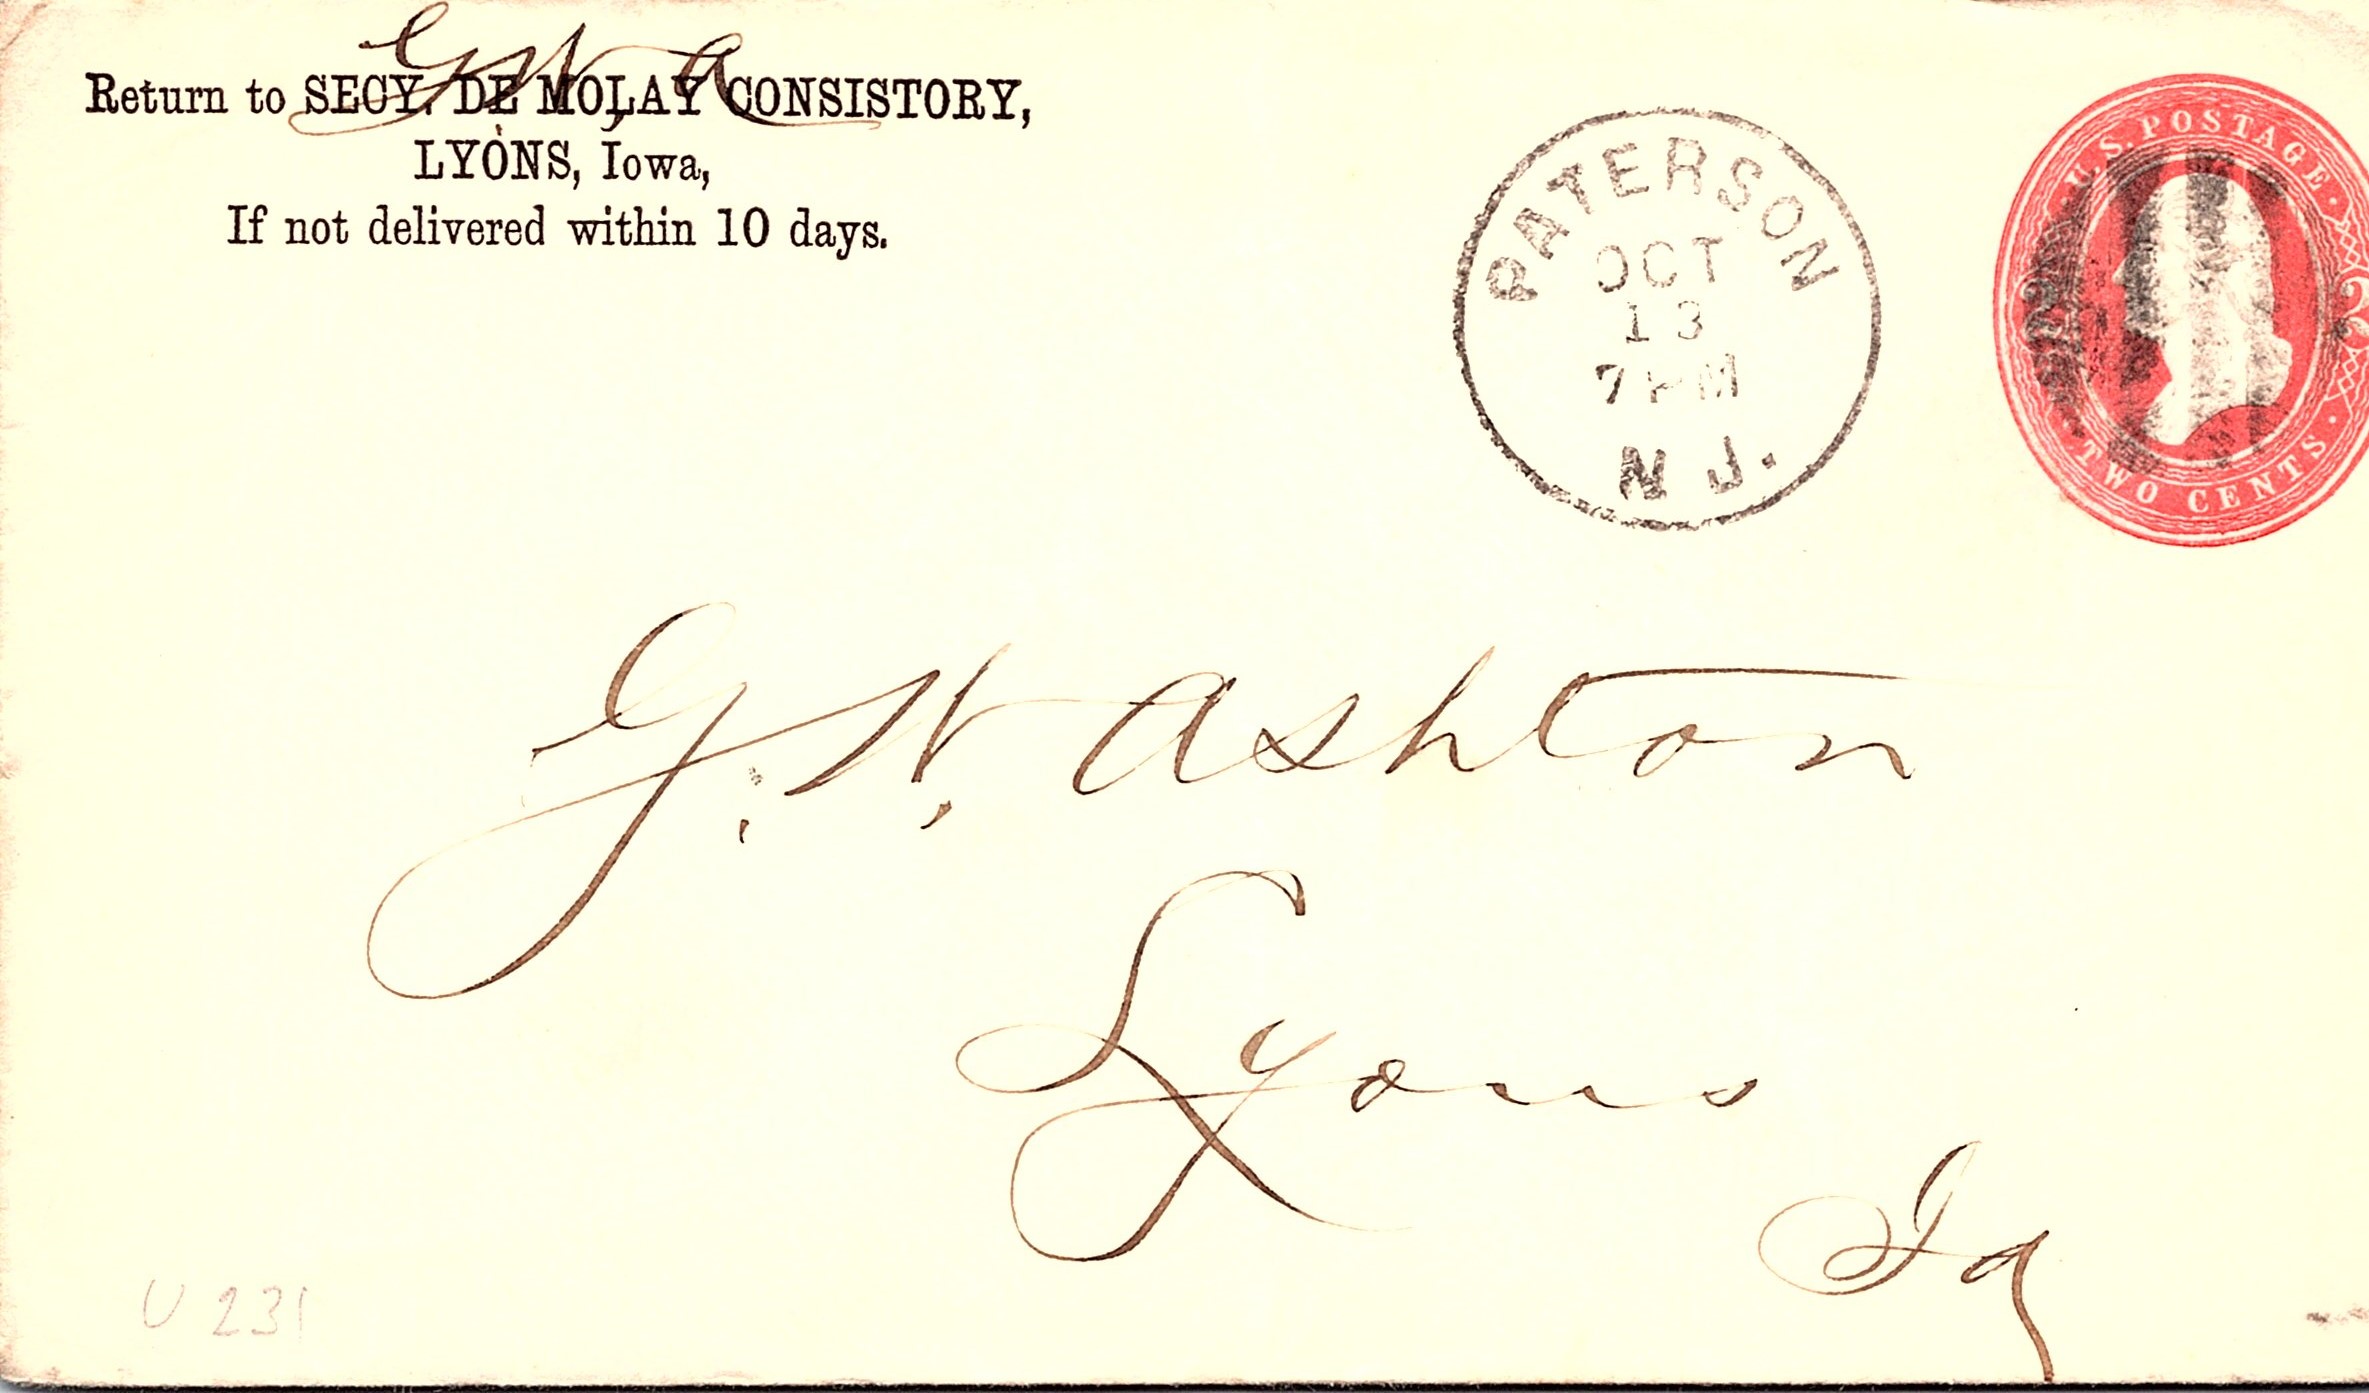 G W A
Return to SECY. DE MOLAY CONSISTORY,
LYONS, Iowa,
If not delivered within 10 days.
PATERSON
OCT
13
7 PM
N J.
U.S. POSTAGE
TWO CENTS
G. W. Ashton
Lyons
Ia
U 231